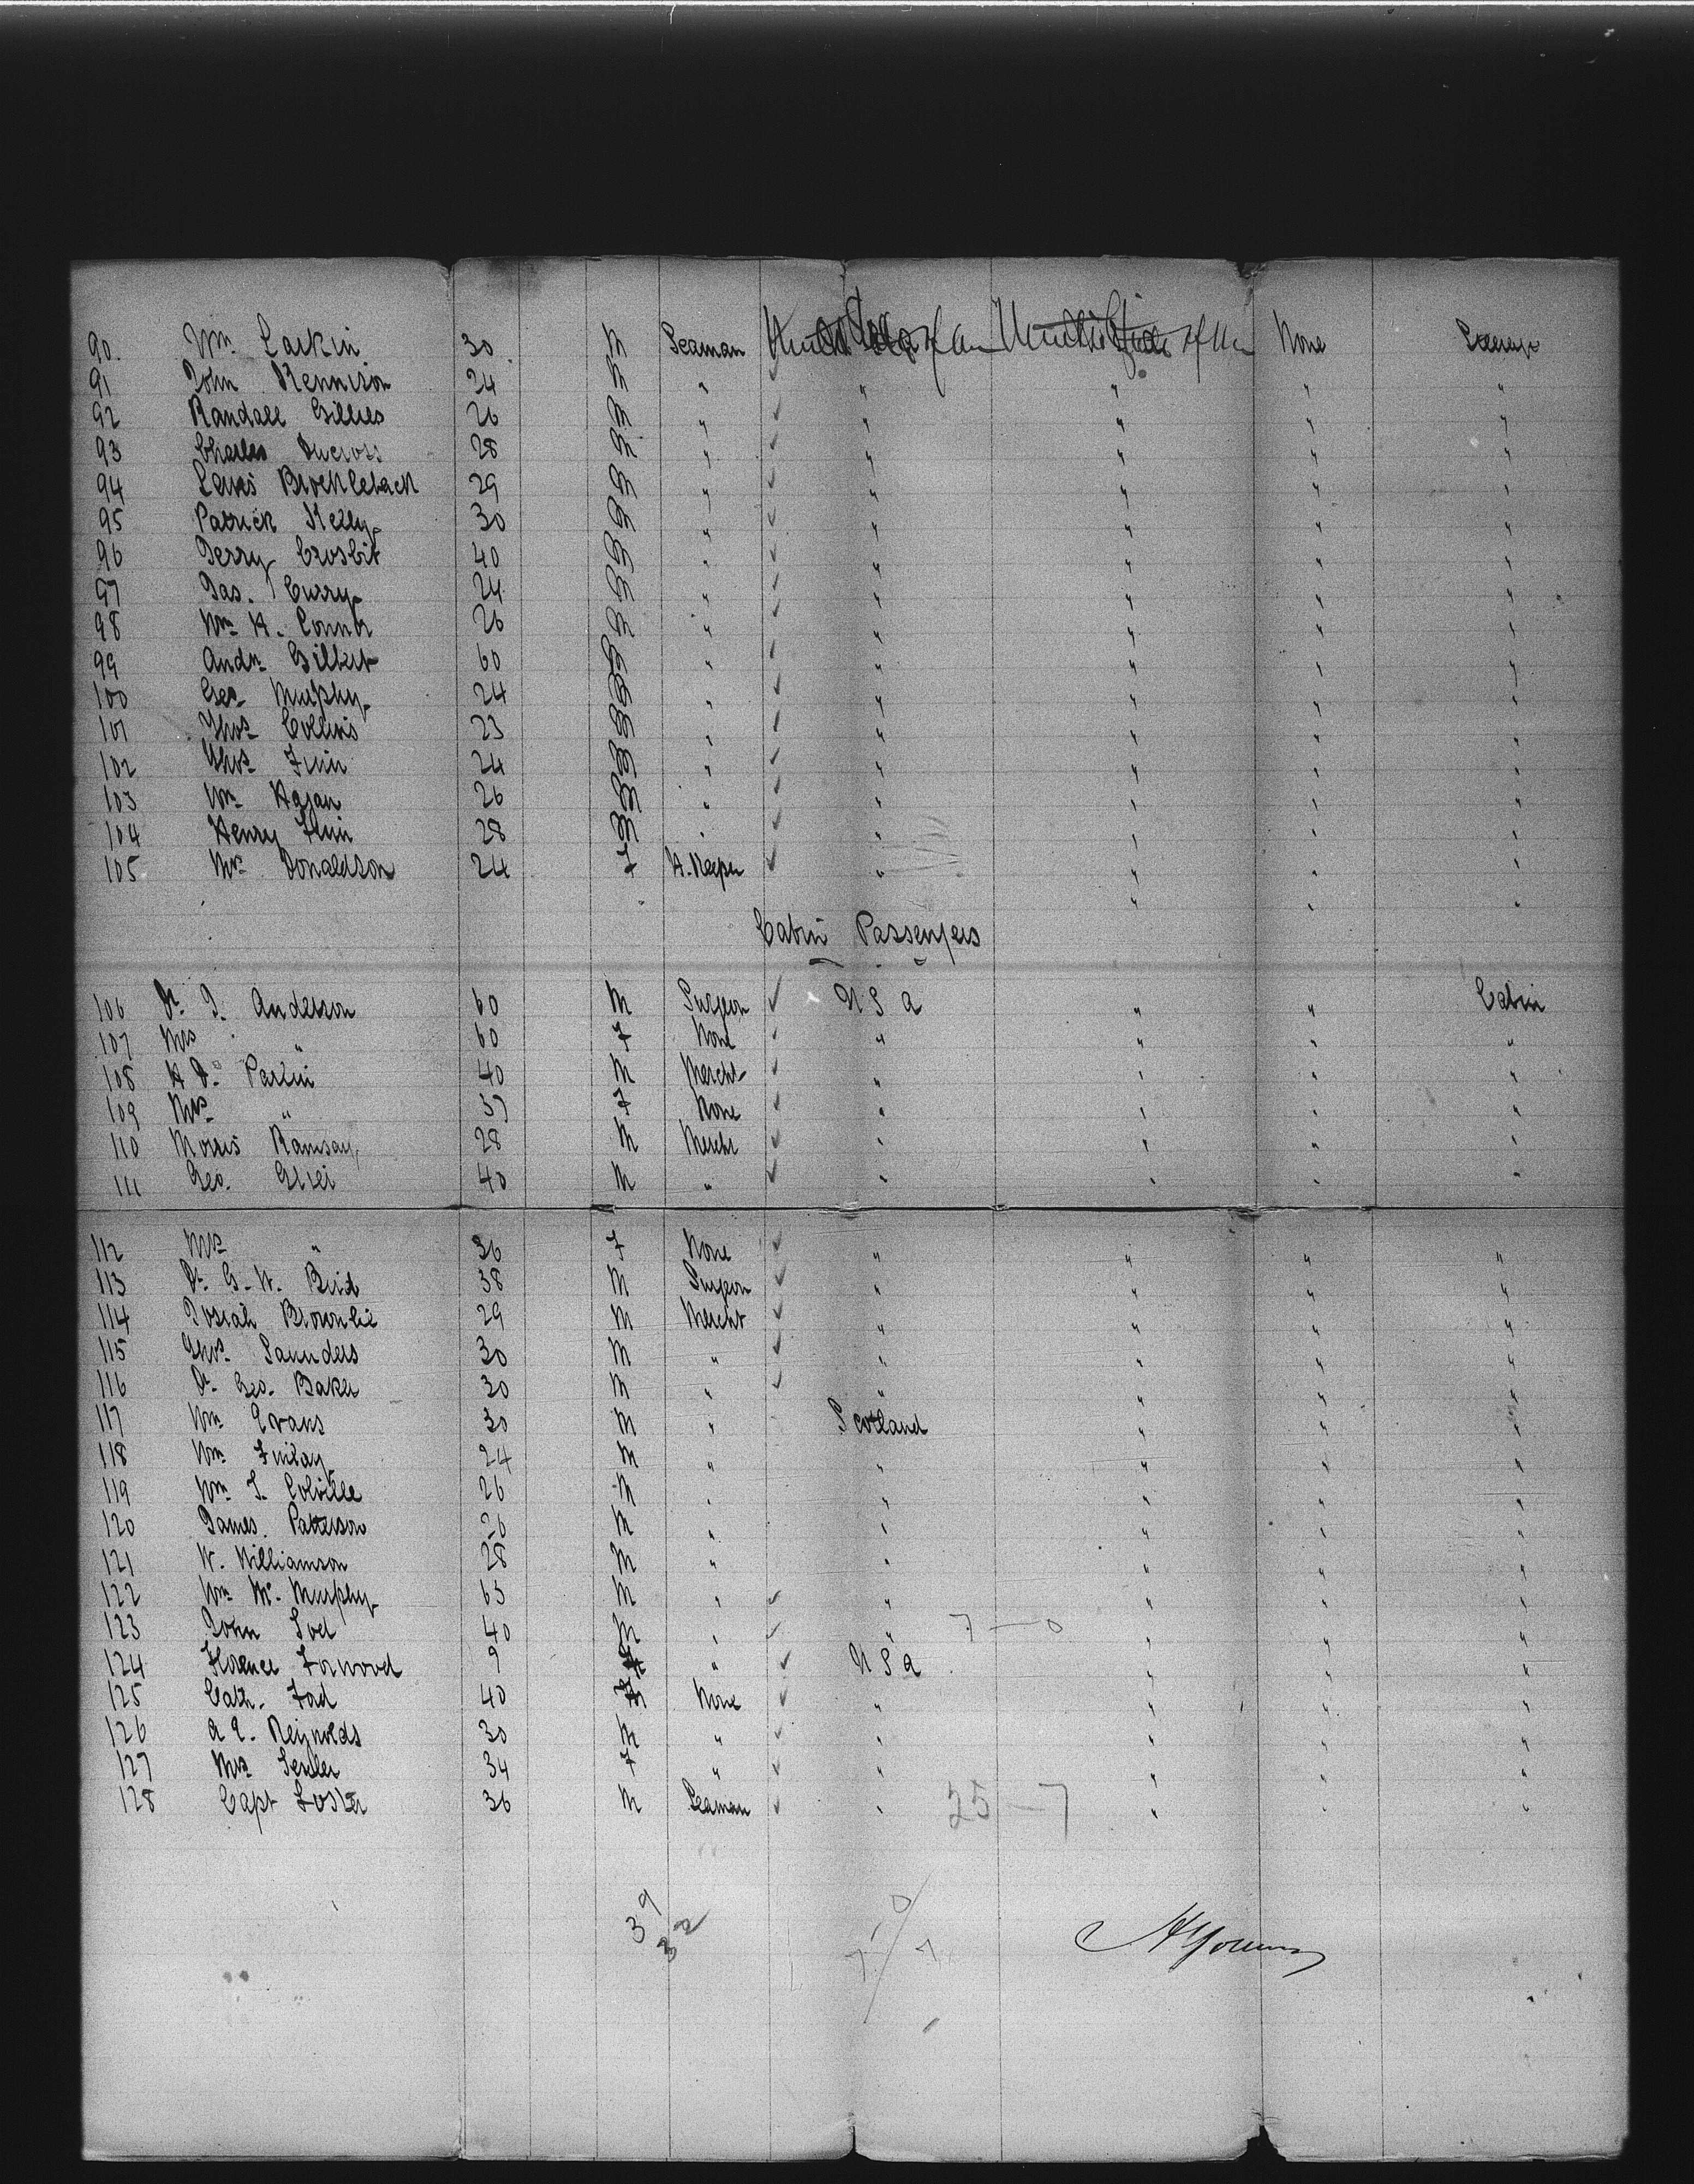 90. Wm. Larkin 30 M Seaman United States of Am United States of Am None Steerage
91 John Kennison 24 M " " " " "
92 Randall Gillies 26 M " " " " "
93 Charles Ducross 28 M " " " " "
94 Lewis Brockleback 29 M " " " " "
95 Patrick Kelly 30 M " " " " "
96 Jerry Crosbit 40 M " " " " "
97 Jas. Curry 24 M " " " " "
98 Wm H. Connor 26 M " " " " "
99 Andw Gilbert 60 M " " " " "
100 Geo. Murphy 24 M " " " " "
101 Thos Collins 23 M " " " " "
102 Thos Finn 24 M " " " " "
103 Wm Hagan 26 M " " " " "
104 Henry 28 M " " " " "
105 Mrs Donaldson 24 F H. Keeper " " " "
Cabin Passengers
106 Dr. J. Anderson 60 M Surgeon U S A " " Cabin
107 Mrs " 60 F None " " " "
108 H D. Parlin 40 M Mercht " " " "
109 Mrs " 37 F None " " " "
110 Morris Ramsay 28 M Mercht " " " "
111 Geo. 40 M " " " " "
112 Mrs " 36 F None " " " "
113 Dr. G. W. 38 M Surgeon " " " "
114 Josiah Brownlie 29 M Mercht " " " "
115 Thos. Saunders 30 M " " " " "
116 Dr. Geo. Baker 30 M " " " " "
117 Wm Evans 30 M " Scotland " " "
118 Wm Finlay 24 M " " " " "
119 Wm S. Colville 26 M " " " " "
120 James Patterson 26 M " " " " "
121 W. Williamson 28 M " " " " "
122 Wm Mc. Murphy 65 M " " " " "
123 John 40 M " " " " " 7 — 0
124 Florence Forwood 9 F " U S A " " "
125 Cath. Ford 40 F None " " " "
126 A E. Reynolds 30 M " " " " "
127 Mrs 34 F " " " " "
128 Capt Foster 36 M Seaman " " " "
25 — 7
39
32